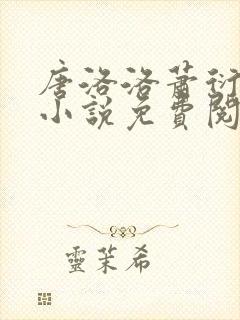 唐洛洛萧衍
小說免費閱
靈茉希